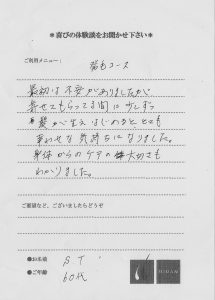 ＊喜びの体験談をお聞かせ下さい＊
ご利用メニュー：
発毛コース
最初は不安がありましたが、
寄せてもらってる間に少しずつ
髪が生えはじめるととても
幸わせな気持ちになりました。
身体からのケアの大切さも
わかりました。
ご要望など、ございましたらどうぞ
●お名前
S T
●ご年齢
60代